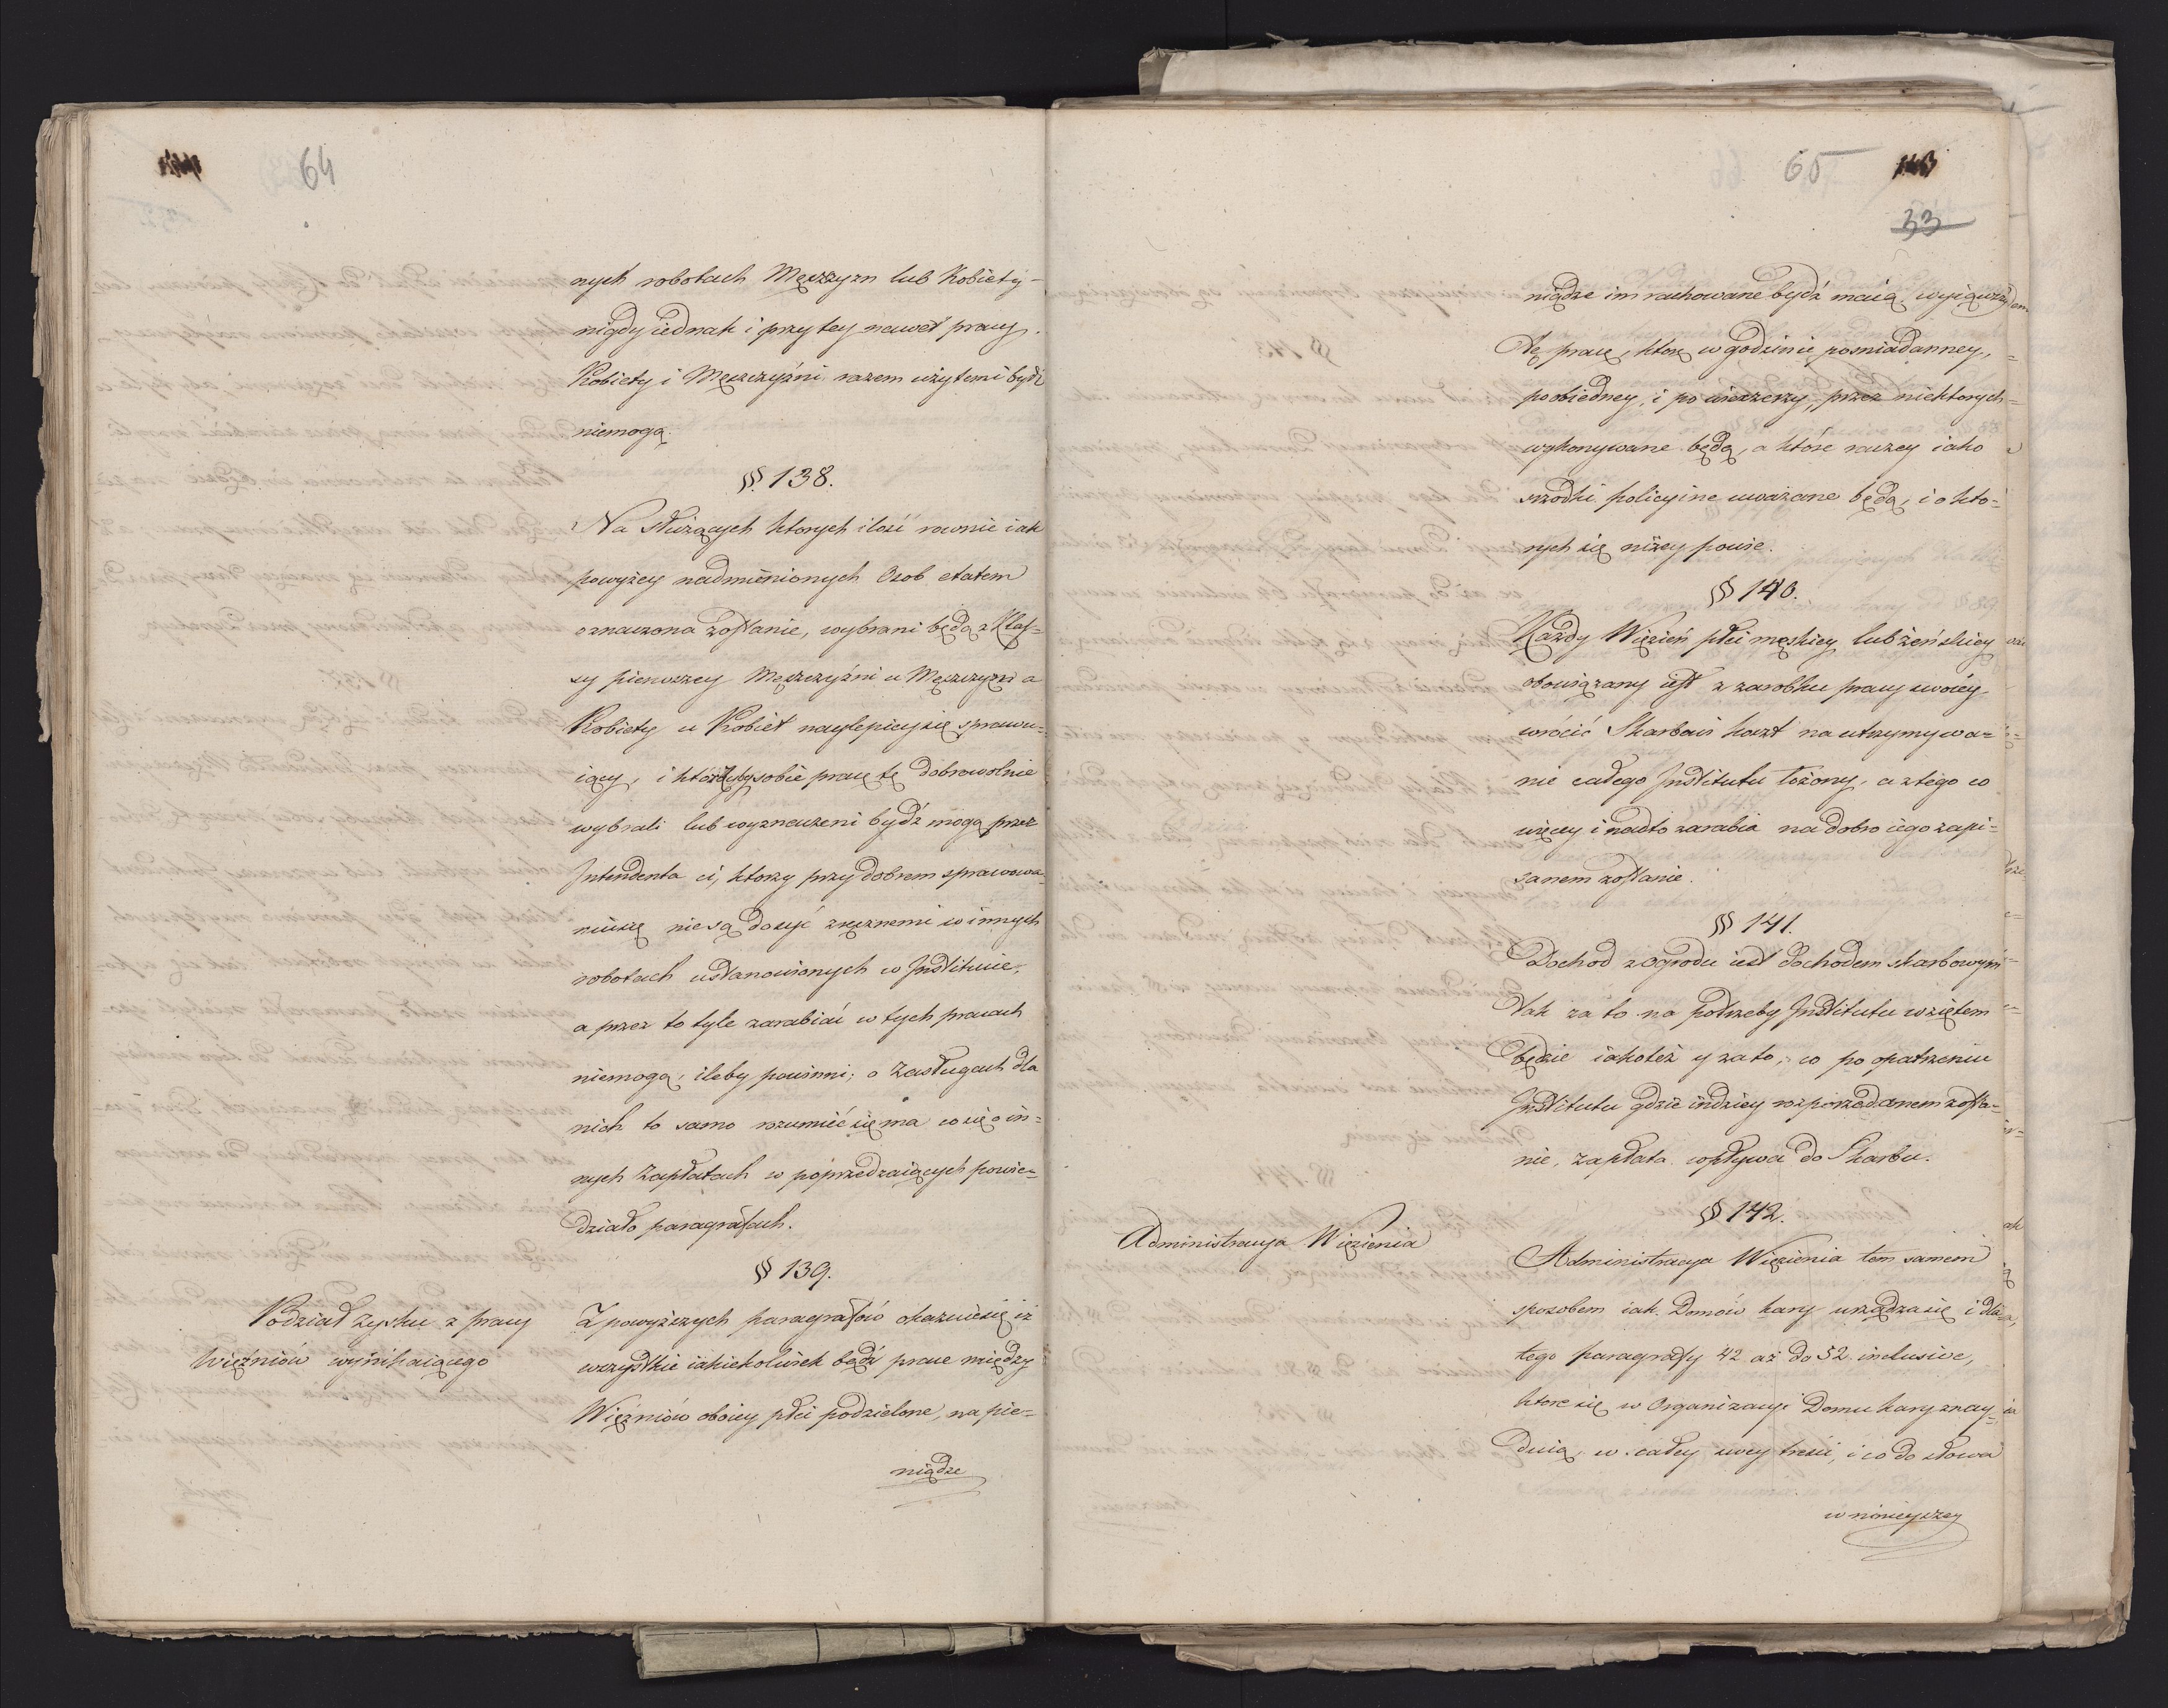 64
nych robotach Męszzyzn lub Kobiety -
nigdy iednak i przy tey nawet pracy
Kobiety i Męszczyźni razem użytemi bydź
niemogą.
§§. 138.
Na służących ktorych ilość rownie iak
powyżey nadmienionych Osob etatem
oznaczona zostanie, wybrani będą z Klas=
sy pierwszey Męszczyźni u Męszczyzn a
Kobiety u Kobiet naylepiey się sprawu=
iący, i którzyby sobie pracę tę dobrowolnie
wybrali lub wyznaczeni bydź mogą przez
Intendenta ci, ktorzy przy dobrem sprawowa=
niu się nie są dosyć zręcznemi w innych
robotach ustanowionych w Instytucie,
a przez to tyle zarabiać w tych pracach
niemogą, ileby powinni; o Zasługach dla
nich to samo rozumieć się ma co się o in=
nych Zapłatach w poprzedzaiących powie=
działo paragrafach.
§§ 139.
Podział zysku z pracy
Więźniów wynikaiącego
Z powyższych paragrafów okazuie się iż
wszystkie iakiekolwiek bądź prace między
Więźniów oboiey płci podzielone, na pie=
niądze
65
33
niądze im rachowane bydź maią, wyiąwszy
tę pracę, ktorą w godzinie pośniadanney,
poobiedney, i po wieczerzy, przez niektorych
wykonywane będą, a które raczey iako
srzodki policyine uważane będą, i o kto=
rych się niżey powie.
§§ 140.
Każdy Więzień płci męskiey lub żeńskiey
obowiązany iest z zarobku pracy swoiey
wrócić Skarbowi koszt na utrzymywa=
nie całego Instytutu łożony, a z tego co
więcey i nadto zarabia na dobro iego zapi=
sanem zostanie.
§§ 141.
Dochod z Ogrodu iest dochodem skarbowym
tak za to na potrzeby Instytutu wziętem
będzie iakoteż y za to, co po opatrzeniu
Instytutu gdzie indziey rozporządzanem zosta=
nie, zapłata wpływa do Skarbu.
§§ 142.
Administracya Więzienia
Administracya Więzienia tem samem
sposobem iak Domów kary urządza się i dla
tego paragrafy 42 aż do 52 inclusive,
ktore się w Organizacyi Domu kary znay=
duią, w całey swey treści, i co do słowa
w ninieyszey